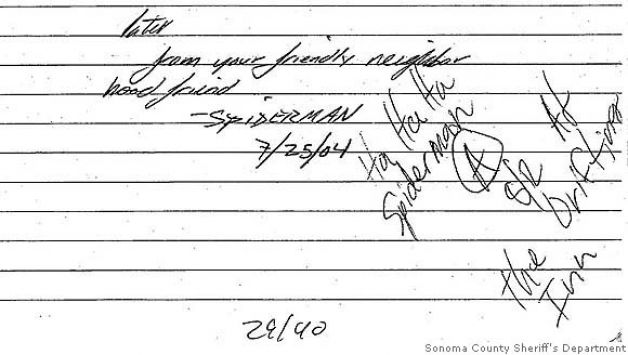 later
from your friendly neighbor
hood friend
-SPIDERMAN
7/25/04
Ha Ha Ha
Spiderman
A
the
Inn
29/40
Sonoma County Sheriff's Department